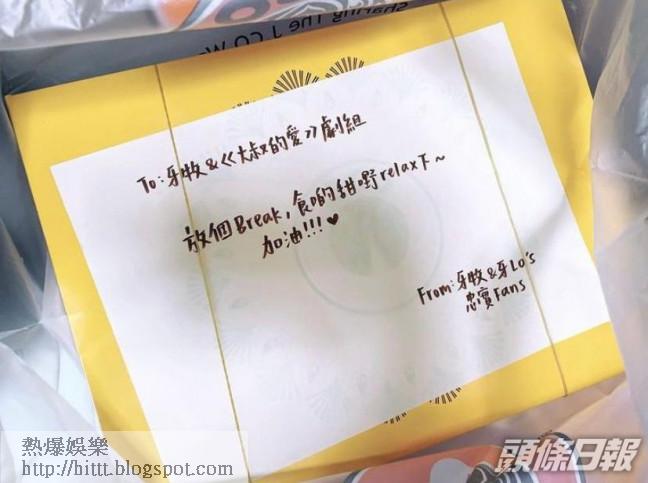 Sharing The J.CO W
To:牙牧&《大叔的愛》劇組
放個Break,食啲甜嘢relax下~
加油!!!♥
From:牙牧&牙Lo's
忠實Fans
熱爆娛樂
http://hittt.blogspot.com
頭條日報